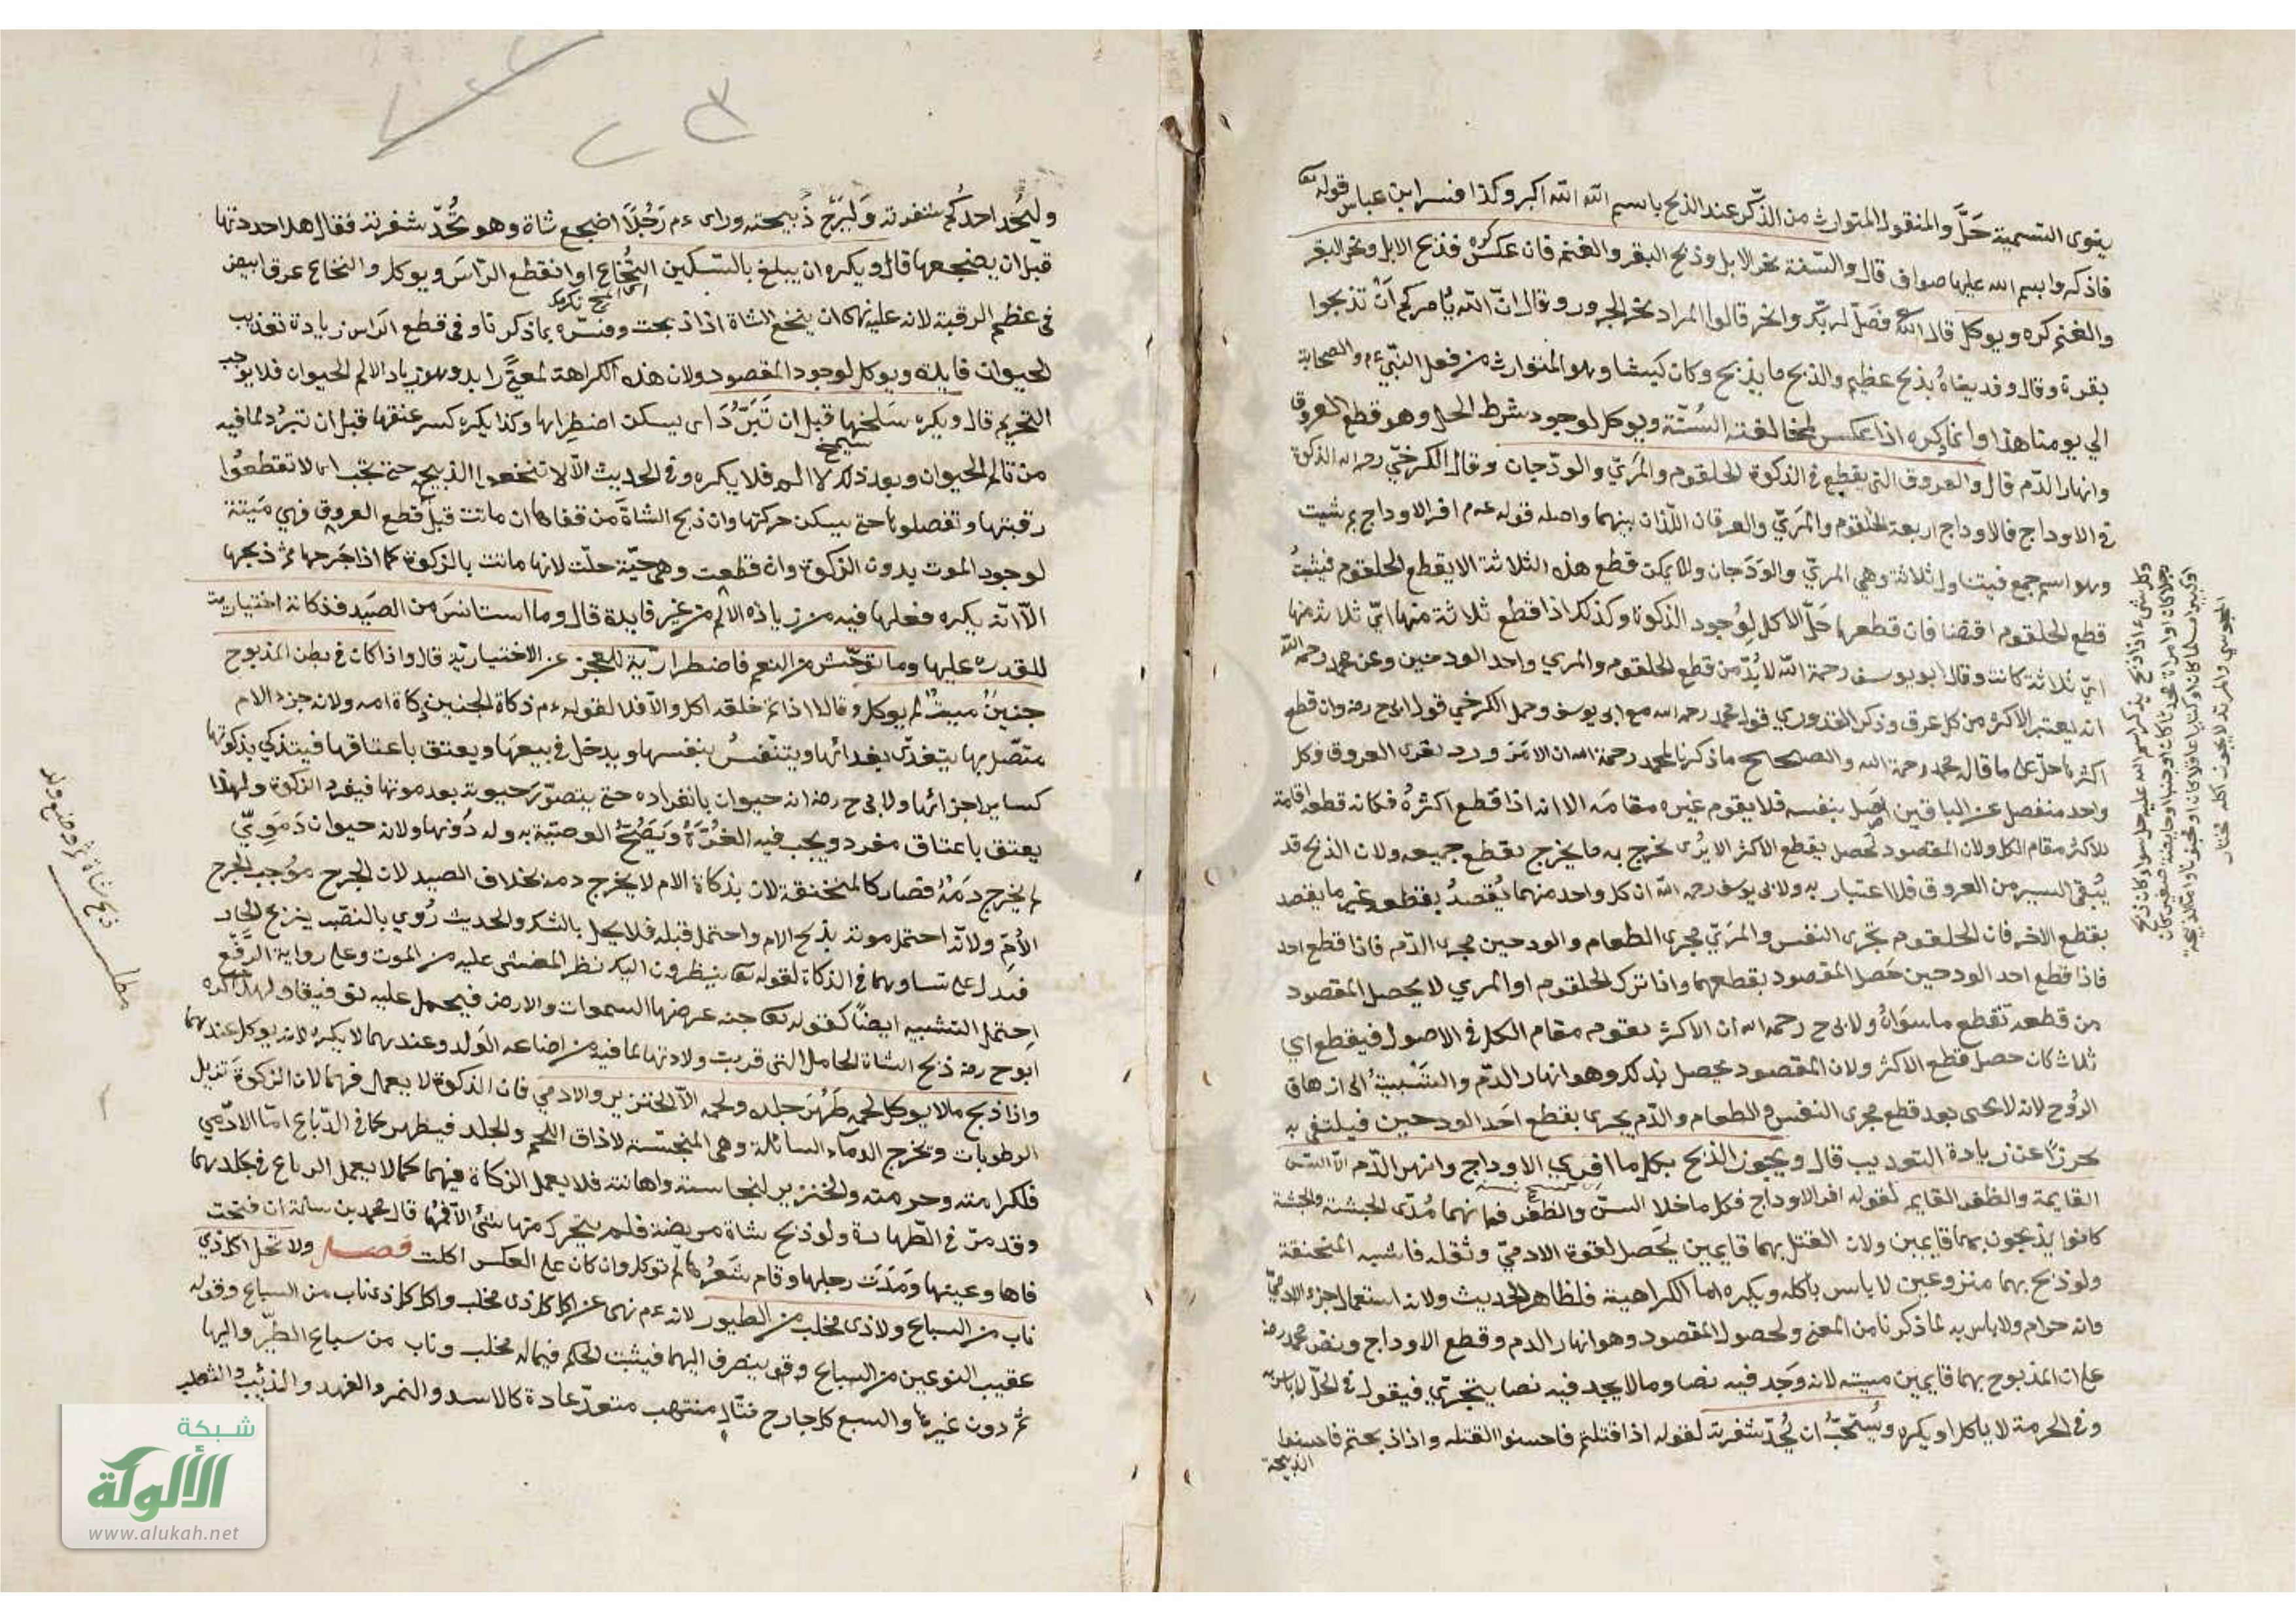 ينوى التسمية حَلَّ والمنقول المتوارث من الذّكر عند الذبح باسم الله الله اكبر وكذا فسر ابن عباس قوله تعا
فاذكروا بسم الله عليها صواف قال والسّنة نحر الابل وذبح البقر والغنم فان عكس كره فذبح الابل ونحر البقر
والغنم كره ويوكل قال الله فَصَلّ لربّك وانحر قالوا المراد نحر الجزور وقال انّ الله يأمركم اَنْ تذبحوا
بقرة وقال وفديناهُ بذبح عظيم والذبح ما يذبح وكان كبشا وهو المتوارث من فعل النّبيّ ءم والصحابة
الي يومنا هذا وانما يكره اذا عكس لمخالفته السُنّة ويوكل لوجود شرط الحل وهو قطع العروق
وانهار الدّم قال والعروق التى يقطع في الذكوة الحلقوم والمَريّ والودّجان وقال الكرخيّ رحمه الله الذكوة
في الاوداج فالاوداج اربعة الحلقوم والمَريّ والعرقان اللّذان بينهما واصله قوله ءم افر الاوداج بم شيت
وهو اسم جمع فيتناول ثلاثة وهي المريّ والوَدَجان ولا يمكن قطع هذه الثلاثة الا بقطع الحلقوم فيثبتُ
قطع الحلقوم اقتضا فان قطعها حَلّ الاكل لِوُجود الذكوة وكذلك اذا قطع ثلاثة منها ايّ ثلاث منها
ايّ ثلاثة كانت وقال ابو يوسف رحمة الله لا بُدّ من قطع الحلقوم والمري واحد الودجين وعن محمد رحمة الله
انه يعتبر الاكثر من كل عرق وذكر القدوري قول محمد رحمه الله مع ابى يوسف وحمل الكرخي قول ابى ح رضه وان قطع
اكثرها حلّ على ما قال محمد رحمة الله والصحيح ماذكرنا لمحمد رحمة الله ان الامر ورد بفرى العروق وكل
واحد منفصل عن الباقين اصل بنفسه فلا يقوم غيره مقامَه الا انه اذا قطع اكثرهُ فكانه قطعه اقامة
للاكثر مقام الكل ولان المقصود يحصل بقطع الاكثر الا يُرى يخرج به ما يخرج بقطع جميعه ولان الذبح قد
يُبقى اليسير من العروق فلا اعتبار به ولابى يوسف رحمه الله ان كل واحد منهما يُقصدُ بقطعه غير ما يقصد
بقطع الاخر فان الحلقوم مجرى النفس والمَريّ مجرى الطعام والودجين مجرى الدّم فاذا قطع احد
فاذا قطع احد الودجين حَصل المقصود بقطعهما واذا ترك الحلقوم او المري لا يَحصل المقصود
من قطعه بقطع ما سوَاهُ ولابى ح رحمه الله ان الاكثر يقوم مقام الكل في الاصول فبقطع اي
ثلاث كان حصل قطع الاكثر ولان المقصود يحصل بذلك وهو انهار الدّم والتَسْبيبُ الى ازهاق
الرُوح لانه لا يحيى بعد قطع مجرى النفس والطعام والدّم يجرى بقطع احَد الودجين فيكتفى به
تحرزًا عن زيادة التعذيب قال ويجوز الذبح بكل ما افرى الاوداج وانهر الدّم الّا السّنّ
القايمة والظفر القايم لقوله افر الاوداج فكل ما خلا السنّ والظفر فانهما مُدَى الحبشة والحبشة
كانوا يذبحون بهما قايمين ولان القتل بهما قايمين يَحصل لقوة الادميّ وثقله فاشبه المنخنقة
ولو ذبح بهما منزوعين لا باس بأكله ويكره اما الكراهية فلظاهر الحديث ولانه استعمال جزء الادميّ
وانه حرام ولا باس به لما ذكرنا من المعنى ولحصول المقصود وهو انهار الدم وقطع الاوداج ونص محمد رضه
على ان المذبوح بهما قايمين ميتة لانه وَجَد فيه نصا وما لا يجد فيه نصا يتحرّي فيقول في الحلّ لا باس به
وفى الحرمة لا ياكل او يكره ويُستَحبُّ ان يُحِدّ شفرته لقوله اذا قتلتم فاحسنوا القتله واذا ذبحتم فاحسنوا
الذبيحة
وكل شىء اذا ذبح بذكر اسم الله عليه حل سواء كان ذبح
رجلا كان او امراة محدثا كان او جنبا او حايضة صغير كان
المجوسى والمرتد لا يجوز اكله مختار
وليُحِد احدُكم شفرته وَليُرِحْ ذبيحته وراى ءم رَجُلًا اضجع شاة وهو يُحُدّ شفرته فقال هلا احددتها
قبل ان يضجعها قال ويكره ان يبلغ بالسّكين النُخاع او انقطع الرّاسَ ويوكل والنخاع عرق ابيض
في عظم الرقبة لانه عليه نهى ان ينخع الشاة اذا ذبحت وفسّره بماذكرنا وفى قطع الرّاس زيادة تعذيب
لحيوان فايدة ويوكل لوجود المقصود ولان هذه الكراهة لمعنًى زايد وهو زياد الالم الحيوان فلا يوجب
التحريم قال ويكره سَلخها قبل ان تَبَرُّدَ اى يسكن اضطِرابها وكذا يكره كسر عنقها قبل ان تبرُد لما فيه
من تالم الحيوان وبعد ذلك لا الم فلا يكره وفى الحديث الّا لا تنخعوا الذبيح حتى تجب اى لا تقطعُوا
رقبتها وتفصلوها حتى يسكن حركتها وان ذبح الشاةَ من قفاها ان ماتت قبل قطع العروق فهي مَيتة
لوجود الموت بدون الذكوة وان قطعت وهى حيّة حلّت لانها ماتت بالذكوة كما اذا جَرحها ثمّ ذبحها
الّا انّه يكره فعلها فيه من زياذه الالم من غير فايدة قال وما استانسَ من الصَيد فذكاته اختيارية
للقدره عليها وما توحّش من النعم فاضطرارّية للعجز عن الاختياريّة قال واذا كان في بطن المذبوح
جنينٌ ميتٌ لم يوكل وقالا اذا تمّ خلقه اكل والّا فلا لقوله ءم ذكاة الجنين ذكاة امه ولانه جزء الام
متصّل بها يتغذّى بغدائها ويتنفّسُ بنفسها ويدخل في بيعها ويعتق باعتاقها فيتذكي بذكوتها
كساير اجزائها ولابى ح رضه انه حيوان بانفراده حتى يتصوّر حيوته بعد موتها فيفرد الذكوة ولهذا
يعتق باعتاق مفرد ويجب فيه الغُرّةُ وَيَصُحُّ الوصيّة به وله دُونها ولانه حيوان دَمَوِيّ
لم يخرج دَمَهُ فصار كالمنخنقة لان بذكاة الام لا يخرج دمه بخلاف الصيد لان الجرح موجب لخرج
الاُمّ ولانّه احتمل موته بذبح الام واحتمل قبله فلا يحل بالشك والحديث رُوي بالنصَب بنزع الخار
فيدل على تساويهما في الذكاة لقوله تعا ينظرون اليك نظر المغشى عليه من الموت وعلى رواية الرَفع
اِحتمل التشبيه ايضًا كقوله تعا جنة عرضها السموات والارض فيحمل عليه توفيقا ولهذا كره
ابو ح رضه ذبح الشاة الحامل التى قربت ولادتها لما فيه من اضاعة الوَلد وعندهما لا يكره لانه يوكل عندهما
واذا ذبح ما لا يوكل لحمه طَهُرَ جلده ولحمه الّا الخنزير والادمي فان الذكوة لا يعمل فيهما لان الذكوة تزيل
الرطوبات وتخرج الدماء السائلة وهى المنجسّة لا ذاق اللحم والجلد فيطهر كما في الدّباغ امّا الادّمي
فلكرامته وحرمته والخنزير لنجاسته واهانته فلا يعمل الذكاة فيهما كما لا يعمل الدباغ في جلدهما
وقد مرّ في الطّهارة ولو ذبح شاة مريضة فلم يتحرك منها شئ الّا فمها قال محمد بن سلمة ان فتحت
فاها وعينها وَمَدّت رجلها وقام شَعرُها لم توكل وان كان على العكس اكلت فصل ولا تحل اكل ذي
ناب من السباع ولا ذى مخلب من الطيور لانه ءم نهى عن اكل كل ذى مخلب واكل كل ذى ناب من السباع وقوله
عقيب النوعين من السباع وقع ينصرف اليهما فيثبت الحكم فيما له مخلب وناب من سباع الطيّر والبها
ثم دون غيرها والسبع كل جارح قتّال منتهب متعدّ عادة كالاسد والنمر والفهد والذئب والثعلب
مطلب
ذبح شاة ثم وضع ولد
شبكة
الألوكة
www.alukah.net